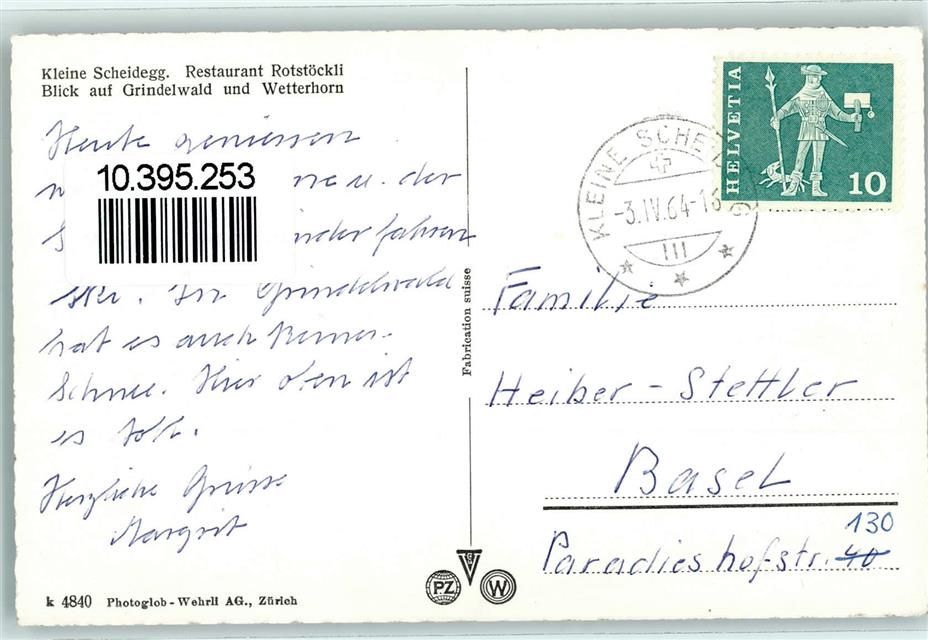 Kleine Scheidegg. Restaurant Rotstöckli
Blick auf Grindelwald und Wetterhorn
Heute geniessen
10.395.253
u. der
fahren
Ski. In Grindelwald
hat es auch keinen
Schnee. Hier oben ist
es toll.
Herzliche Grüsse
Margrit
k 4840 Photoglob-Wehrli AG., Zürich
Fabrication suisse
PZ
W
KLEINE SCHEIDEGG
-3.IV.64-18
III
HELVETIA
10
Familie
Heiber-Stettler
Basel
130
Paradieshofstr. 40